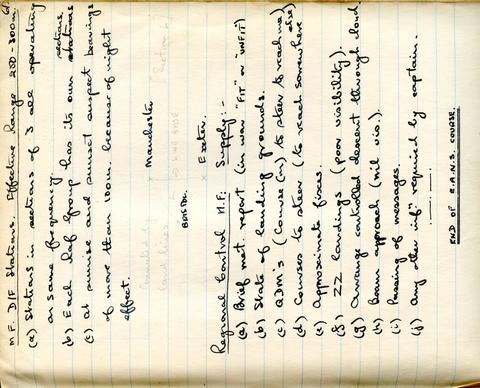 61.
M.F. D/F Stations. Effective Range 250-300m.
(a) Stations in sections of 3 all operating
on same frequency.
(b) Each def group has its own stations sections.
(c) At sunrise and sunset suspect bearings
of more than 100m. because of night
effect.
Manchester
BOSTON.
x Exeter.
Regional Control M.F. Supply:-
(a) Brief met. report (in war "FIT" or "UNFIT")
(b) State of landing grounds.
(c) QDM's (Course (m) to steer to reach me)
(d) Courses to steer (to reach somewhere else)
(e) Approximate fixes.
(f) ZZ landings (poor visibility).
(g) Arrange controlled descent through cloud.
(h) Beam approach (nil vis.).
(i) Passing of messages.
(j) Any other inf'n required by captain.
END OF R.A.N.S. COURSE.